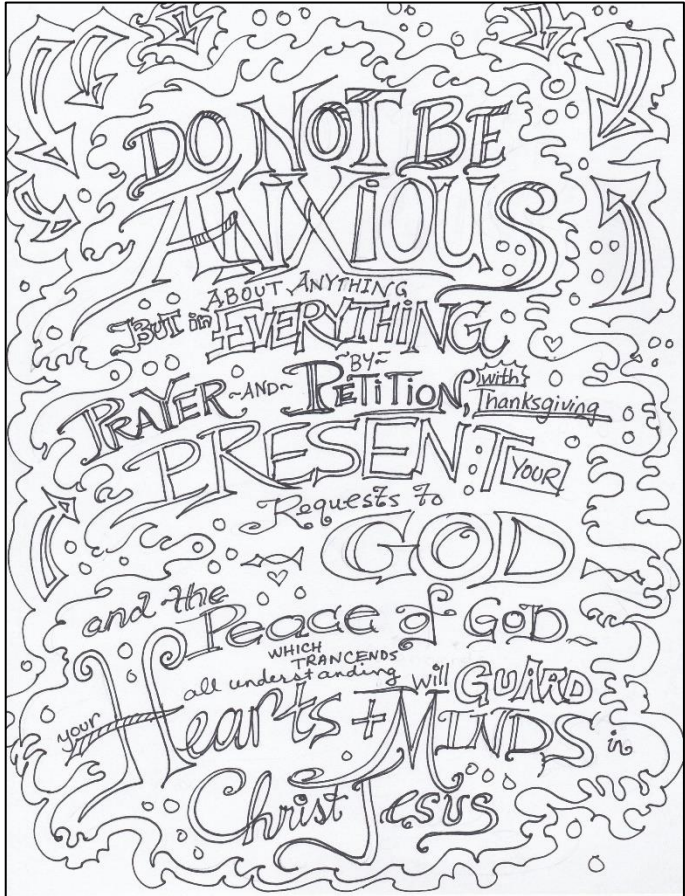 DO NOT BE
ANXIOUS
ABOUT ANYTHING
BUT in EVERYTHING
~BY~
PRAYER ~AND~ PETITION, with
Thanksgiving
PRESENT YOUR
Requests to
GOD
and the
Peace of GOD
WHICH
TRANCENDS
all understanding will GUARD
your Hearts + MINDS in
Christ JESUS